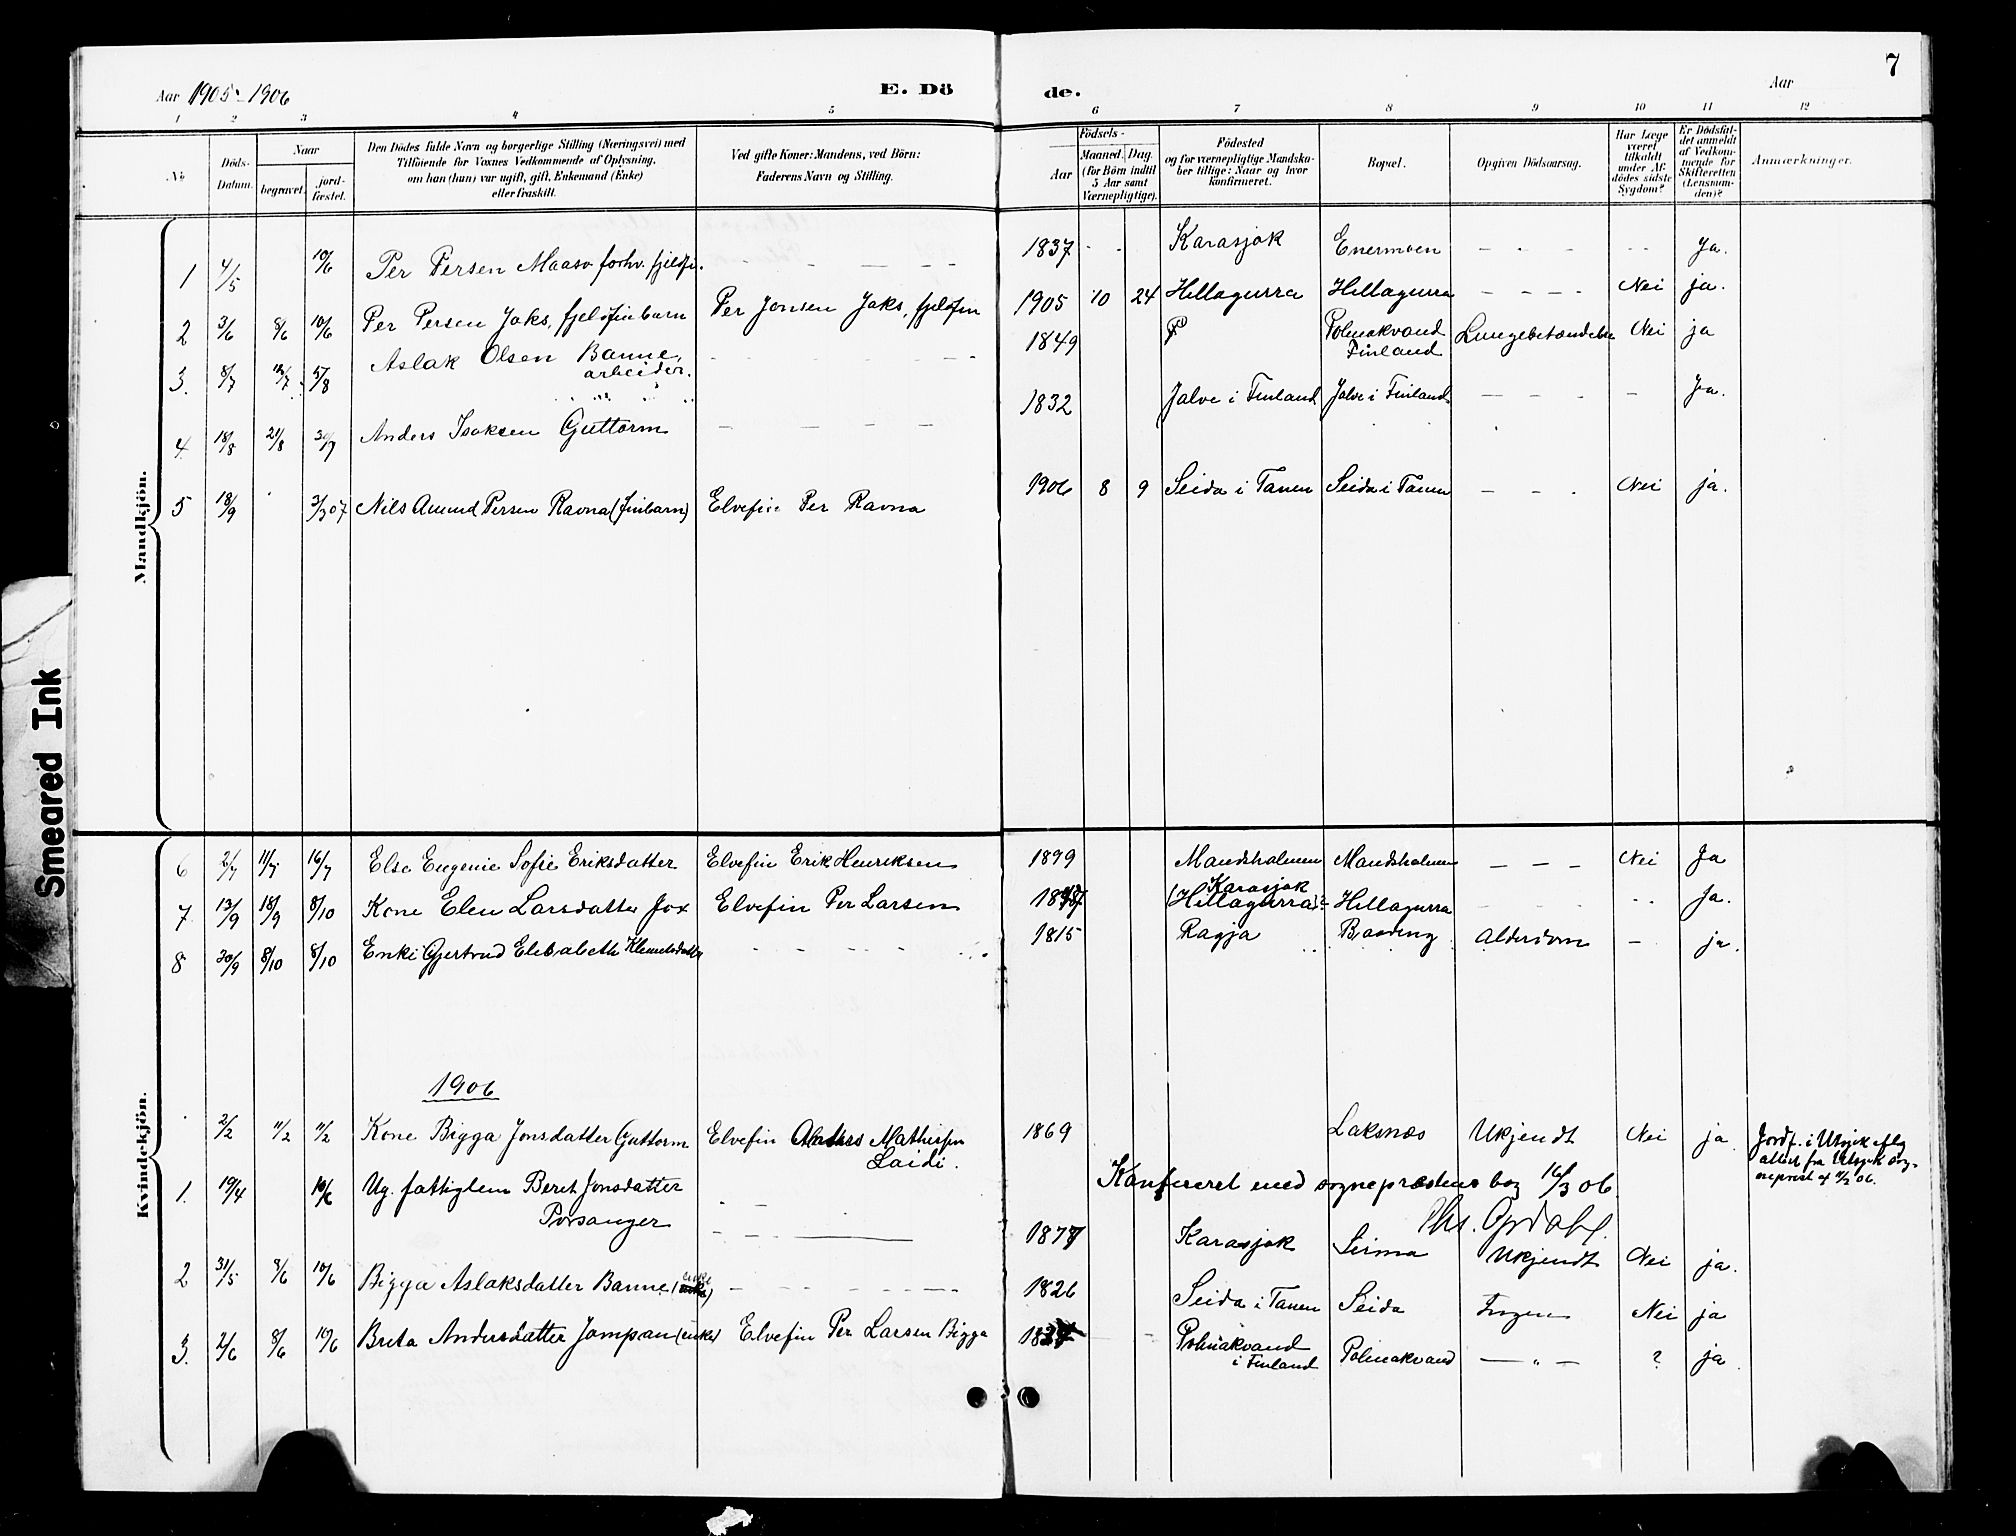 7
Aar 1905-1906 E. Dö de. Aar
1 2 3 4 5 6 7 8 9 10 11 12
No
Döds-Datum.
Naar
begravet.
jord-fæstet.
Den Dödes fulde Navn og borgerlige Stilling (Næringsvei) med
Tilföiende for Voxnes Vedkommende af Oplysning,
om han (hun) var ugift, gift, Enkemand (Enke)
eller fraskilt.
Ved gifte Koner: Mandens, ved Börn:
Faderens Navn og Stilling.
Födsels-
Aar
Maaned. Dag.
(for Börn indtil
5 Aar samt
Værnepligtige).
Födested
og for værnepligtige Mandska-
ber tillige: Naar og hvor
konfirmeret.
Bopæl.
Opgiven Dödsaarsag.
Har Læge
været
tilkaldt
under Af-
dödes sidste
Sygdom?
Er Dödsfal-
det anmeldt
af Vedkom-
mende for
Skifteretten
(Lensman-
den)?
Anmærkninger.
Mandkjön.
1 4/5 10/6 Per Persen Maaso forhv. fjeldfi. 1837 Karasjok Enermoen Ja.
2 3/6 8/6 10/6 Per Persen Jaks, fjeldfinbarn Per Jonsen Jaks, fjeldfin 1905 10 24 Hillagurra Hillagurra Nei ja.
3. 8/7 5/8 Aslak Olsen Banne, arbeider. 1849 Polmakvand Finland Lungebetændelse Nei ja
4 18/8 21/8 Anders Isaksen Guttorm 1832 Jalve i Finland Jalve i Finland Ja.
5 18/9 3/3 07 Nils Amund Persen Ravna (finbarn) Elvefin Per Ravna 1906 8 9 Seida i Tanen Seida i Tanen Nei ja.
Smeared Ink
Kvindekjön.
6 2/7 11/7 16/7 Else Eugenie Sofie Eriksdatter Elvefin Erik Henriksen 1899 Mandsholmen Mandsholmen Nei Ja
7 13/9 18/9 8/10 Kone Elen Larsdatter Jox Elvefin Per Larsen Karasjok (Hillagurra)? Hillagurra Ja.
8 30/9 8/10 8/10 Enke Gjertrud Elisabeth Klemetsdatter 1815 Ragja Baading Alderdom ja.
1906
2/2 11/2 11/2 Kone Bigga Jonsdatter Guttorm Elvefin Anders Mathisen Laidi. 1869 Laksnæs Ukjendt Nei ja Jordf. i Utsjok iflg attest fra Utsjok sog-neprest af 11/2 06.
Konfereret med sogneprestens bog 16/3 06.
Ths. Opdahl.
1. 19/4 10/6 Ug. fattiglem Beret Jonsdatter Porsanger 1877 Karasjok Sirma Ukjendt Nei ja.
2 31/5 8/6 10/6 Bigga Aslaksdatter Banne (enke) 1826 Seida i Tanen Seida Ingen Nei ja
3. 2/6 8/6 10/6 Brita Andersdatter Jompan (enke) Elvefin Per Larsen Bigga Polmakvand i Finland Polmakvand — „ — ? ja